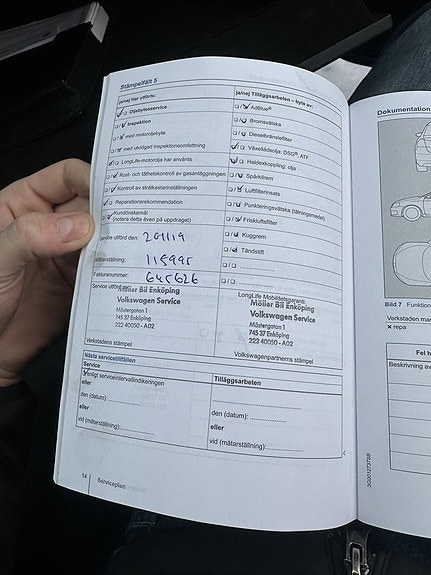 Stämpelfält 5
ja/nej Har utförts:
Oljebytesservice
Inspektion
med motoroljebyte
med utvidgad inspektionsomfattning
LongLife-motorolja har använts
Rost- och täthetskontroll av gasanläggningen
Kontroll av strålkastarinställningen
Reparationsrekommendation
Kundönskemål
(notera detta även på uppdraget)
Service utförd den: 201119
Mätarställning: 118995
Fakturanummer: 645626
Service utförd av:
Möller Bil Enköping
Volkswagen Service
Mästergatan 1
745 37 Enköping
222 40050 - A02
Verkstadens stämpel
ja/nej Tilläggsarbeten – byte av:
AdBlue®
Bromsvätska
Dieselbränslefilter
Växellådsolja: DSG®, ATF
Haldexkoppling: olja
Spärklirem
Luftfilterinsats
Punkteringsvätska (tätningsmedel)
Friskluftsfilter
Kuggrem
Tändstift
LongLife Mobilitetsgaranti:
Möller Bil Enköping
Volkswagen Service
Mästergatan 1
745 37 Enköping
222 40050 - A02
Volkswagenpartnerns stämpel
Nästa servicetillfällen
Service
Enligt serviceintervallindikeringen
eller
den (datum):
eller
vid (mätarställning):
Tilläggsarbeten
den (datum):
eller
vid (mätarställning):
14 Serviceplan
Dokumentation
Bild 7 Funktion
Verkstaden mar
× repa
Fel h
Beskrivning av
3G0012737SB